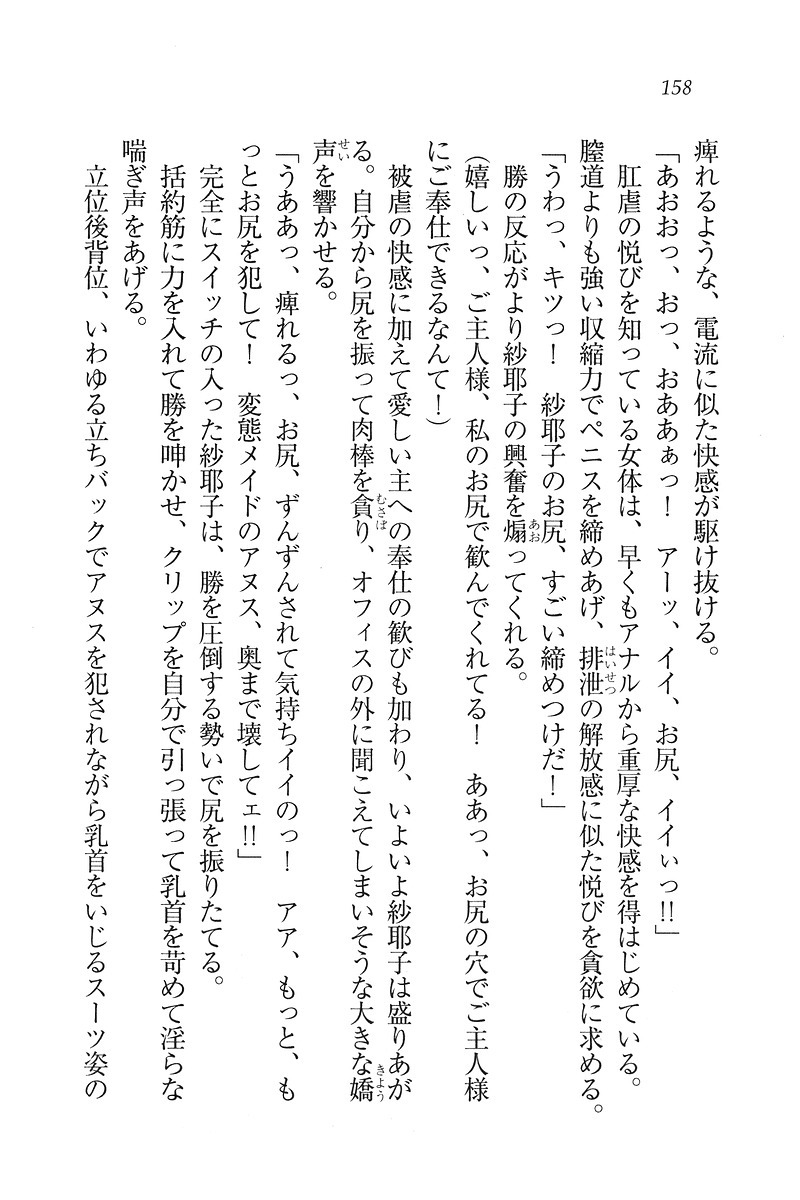 158
痺れるような、電流に似た快感が駆け抜ける。
「あおおっ、おっ、おああぁっ！　アーッ、イイ、お尻、イイぃっ!!」
肛虐の悦びを知っている女体は、早くもアナルから重厚な快感を得はじめている。
膣道よりも強い収縮力でペニスを締めあげ、排泄の解放感に似た悦びを貪欲に求める。
「うわっ、キツっ！　紗耶子のお尻、すごい締めつけだ！」
勝の反応がより紗耶子の興奮を煽ってくれる。
（嬉しいっ、ご主人様、私のお尻で歓んでくれてる！　ああっ、お尻の穴でご主人様
にご奉仕できるなんて！）
被虐の快感に加えて愛しい主への奉仕の歓びも加わり、いよいよ紗耶子は盛りあが
る。自分から尻を振って肉棒を貪り、オフィスの外に聞こえてしまいそうな大きな嬌
声を響かせる。
「うああっ、痺れるっ、お尻、ずんずんされて気持ちイイのっ！　アア、もっと、も
っとお尻を犯して！　変態メイドのアヌス、奥まで壊してェ!!」
完全にスイッチの入った紗耶子は、勝を圧倒する勢いで尻を振りたてる。
括約筋に力を入れて勝を呻かせ、クリップを自分で引っ張って乳首を苛めて淫らな
喘ぎ声をあげる。
立位後背位、いわゆる立ちバックでアヌスを犯されながら乳首をいじるスーツ姿の